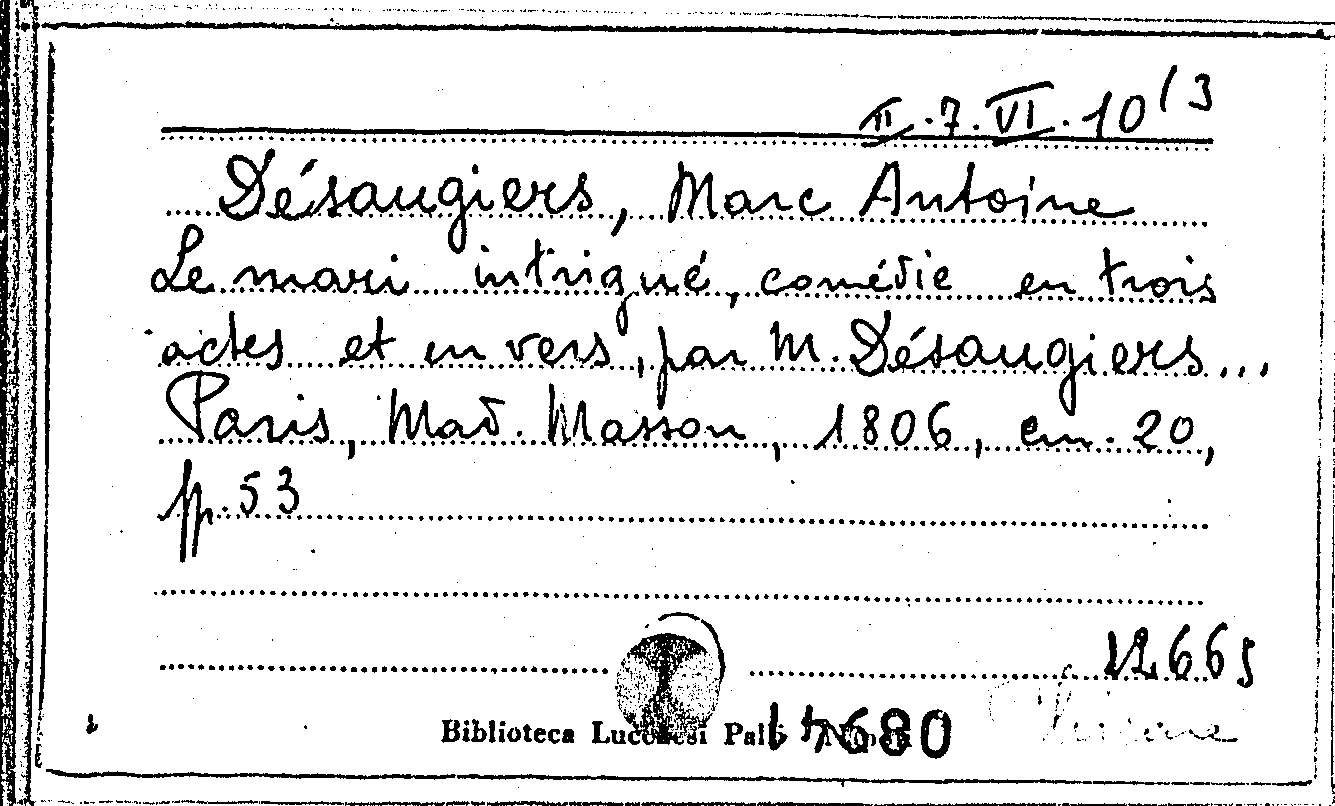 II.7.VI.10/3
Désaugiers, Marc Antoine
Le mari intrigué, comédie en trois
actes et en vers, par M. Désaugiers...
Paris, Mad. Masson, 1806, cm. 20,
pp. 53
12665
Biblioteca Lucchesi Palli